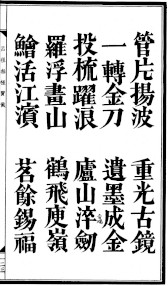 管片揚波　重光古鏡
一轉金刀　遺墨成金
投梳躍浪　廬山淬劍
羅浮畫山　鶴飛庾嶺
鱠活江濱　茗餘錫福